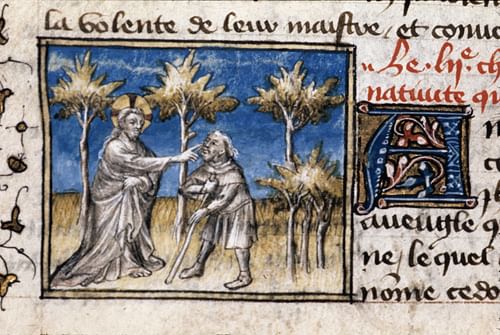 la volente de leur maistre, et conue
Le .lije. ch
natiuite qu
A
aueugle q
ne, lequel
nome cedo